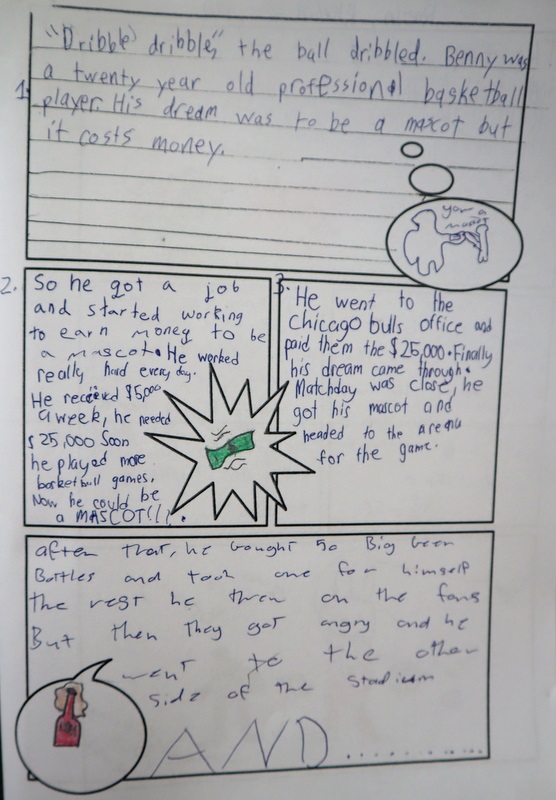 "Dribble dribble," the ball dribbled. Benny was
1. a twenty year old professional basketball
player. His dream was to be a mascot but
it costs money.
your a
mascot
2. So he got a job
and started working
to earn money to be
a mascot. He worked
really hard every day.
He received $5,000
a week, he needed
$25,000 Soon
he played more
basketball games.
Now he could be
a MASCOT!!!.
3. He went to the
Chicago bulls office and
paid them the $25,000. Finally
his dream came through.
Matchday was close, he
got his mascot and
headed to the arena
for the game.
after that, he bought 50 Big beer
Bottles and took one for himself
The rest he threw on the fans
But then they got angry and he
went to the other
side of the stadium
AND............